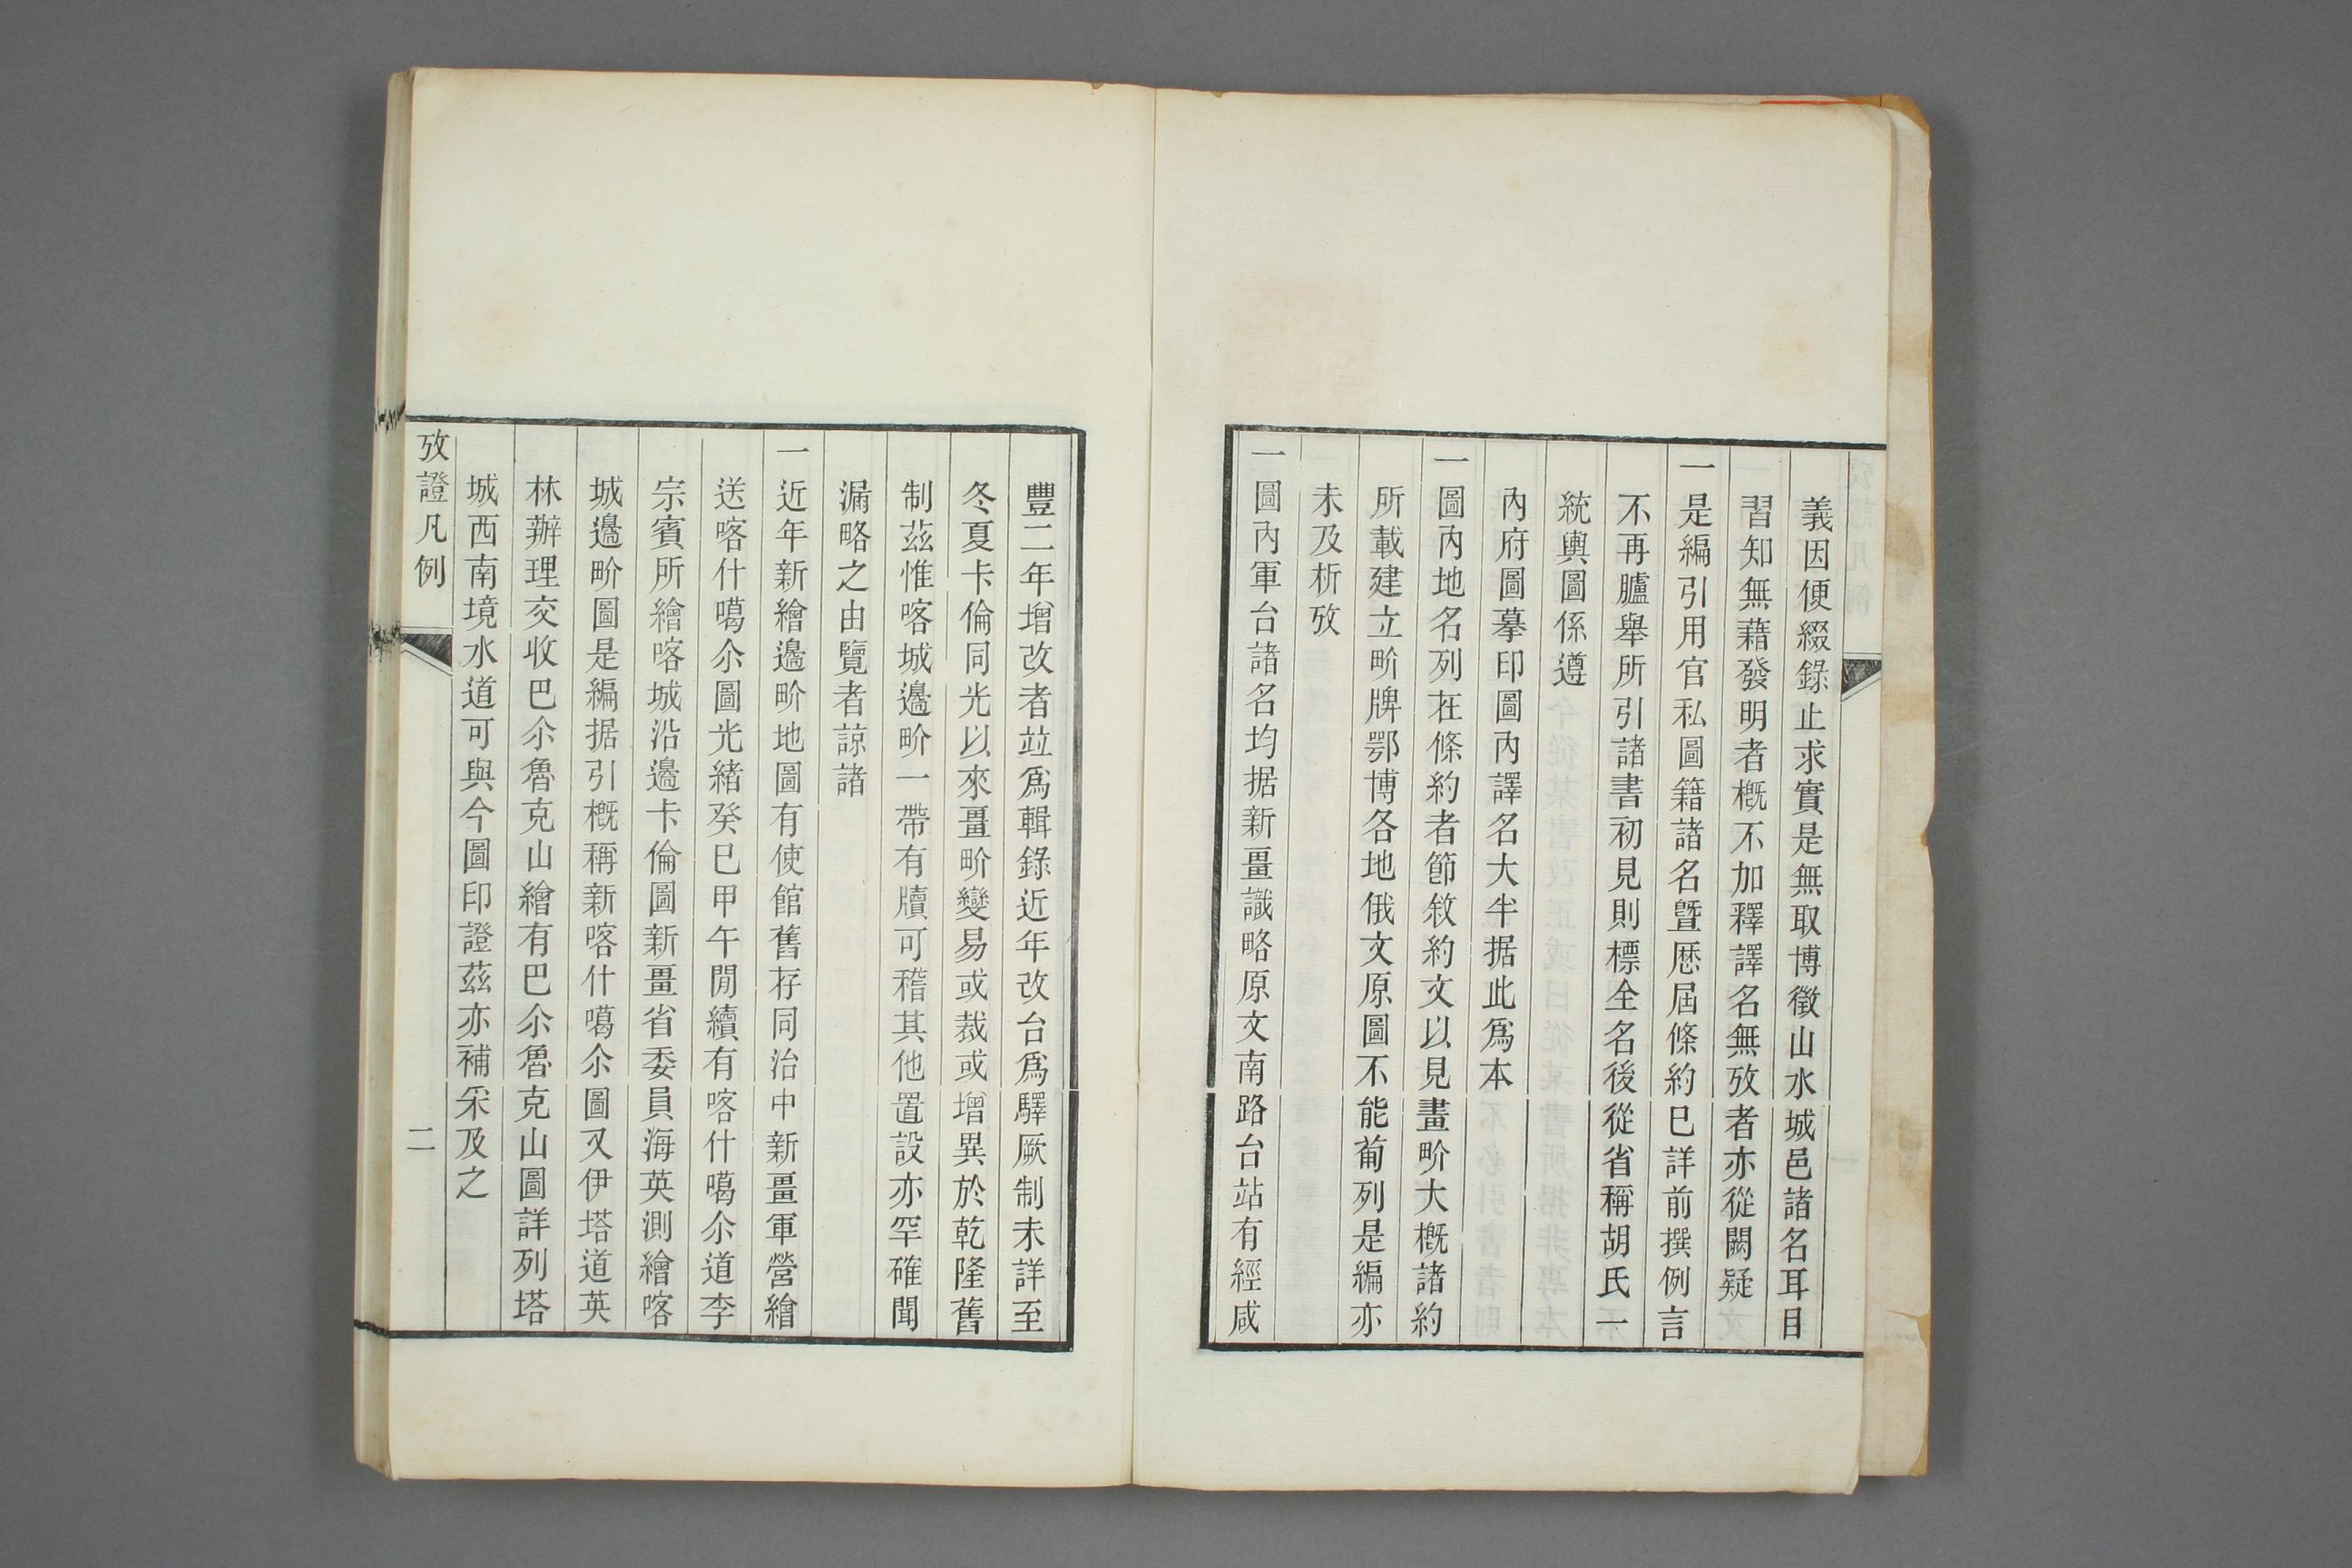 義因便綴錄止求實是無取博徵山水城邑諸名耳目
習知無藉發明者概不加釋譯名無攷者亦從闕疑
一是編引用官私圖籍諸名曁厯屆條約已詳前撰例言
不再臚舉所引諸書初見則標全名後從省稱胡氏一
統輿圖係遵
內府圖摹印圖內譯名大半据此爲本
一圖內地名列在條約者節敘約文以見畫畍大概諸約
所載建立畍牌鄂博各地俄文原圖不能葡列是編亦
未及析攷
一圖內軍台諸名均据新畺識略原文南路台站有經咸
豐二年增改者竝爲輯錄近年改台爲驛厥制未詳至
冬夏卡倫同光以來畺畍變易或裁或增異於乾隆舊
制茲惟喀城邊畍一帶有牘可稽其他置設亦罕確聞
漏略之由覽者諒諸
一近年新繪邊畍地圖有使館舊存同治中新畺軍營繪
送喀什噶尒圖光緖癸巳甲午閒續有喀什噶尒道李
宗賓所繪喀城沿邊卡倫圖新畺省委員海英測繪喀
城邊畍圖是編据引概稱新喀什噶尒圖又伊塔道英
林辦理交收巴尒魯克山繪有巴尒魯克山圖詳列塔
城西南境水道可與今圖印證茲亦補采及之
攷證凡例
二